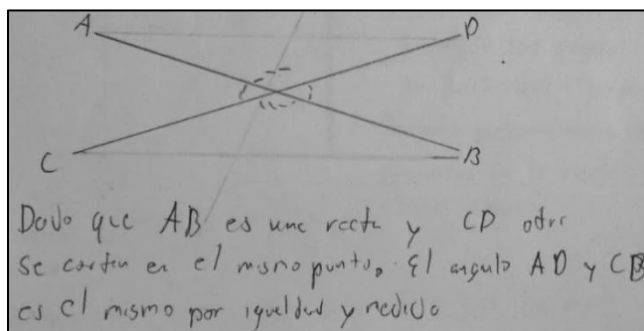 A
D
C
B
Dado que AB es una recta y CD otra
se cortan en el mismo punto. El angulo AD y CB
es el mismo por igualdad y medida